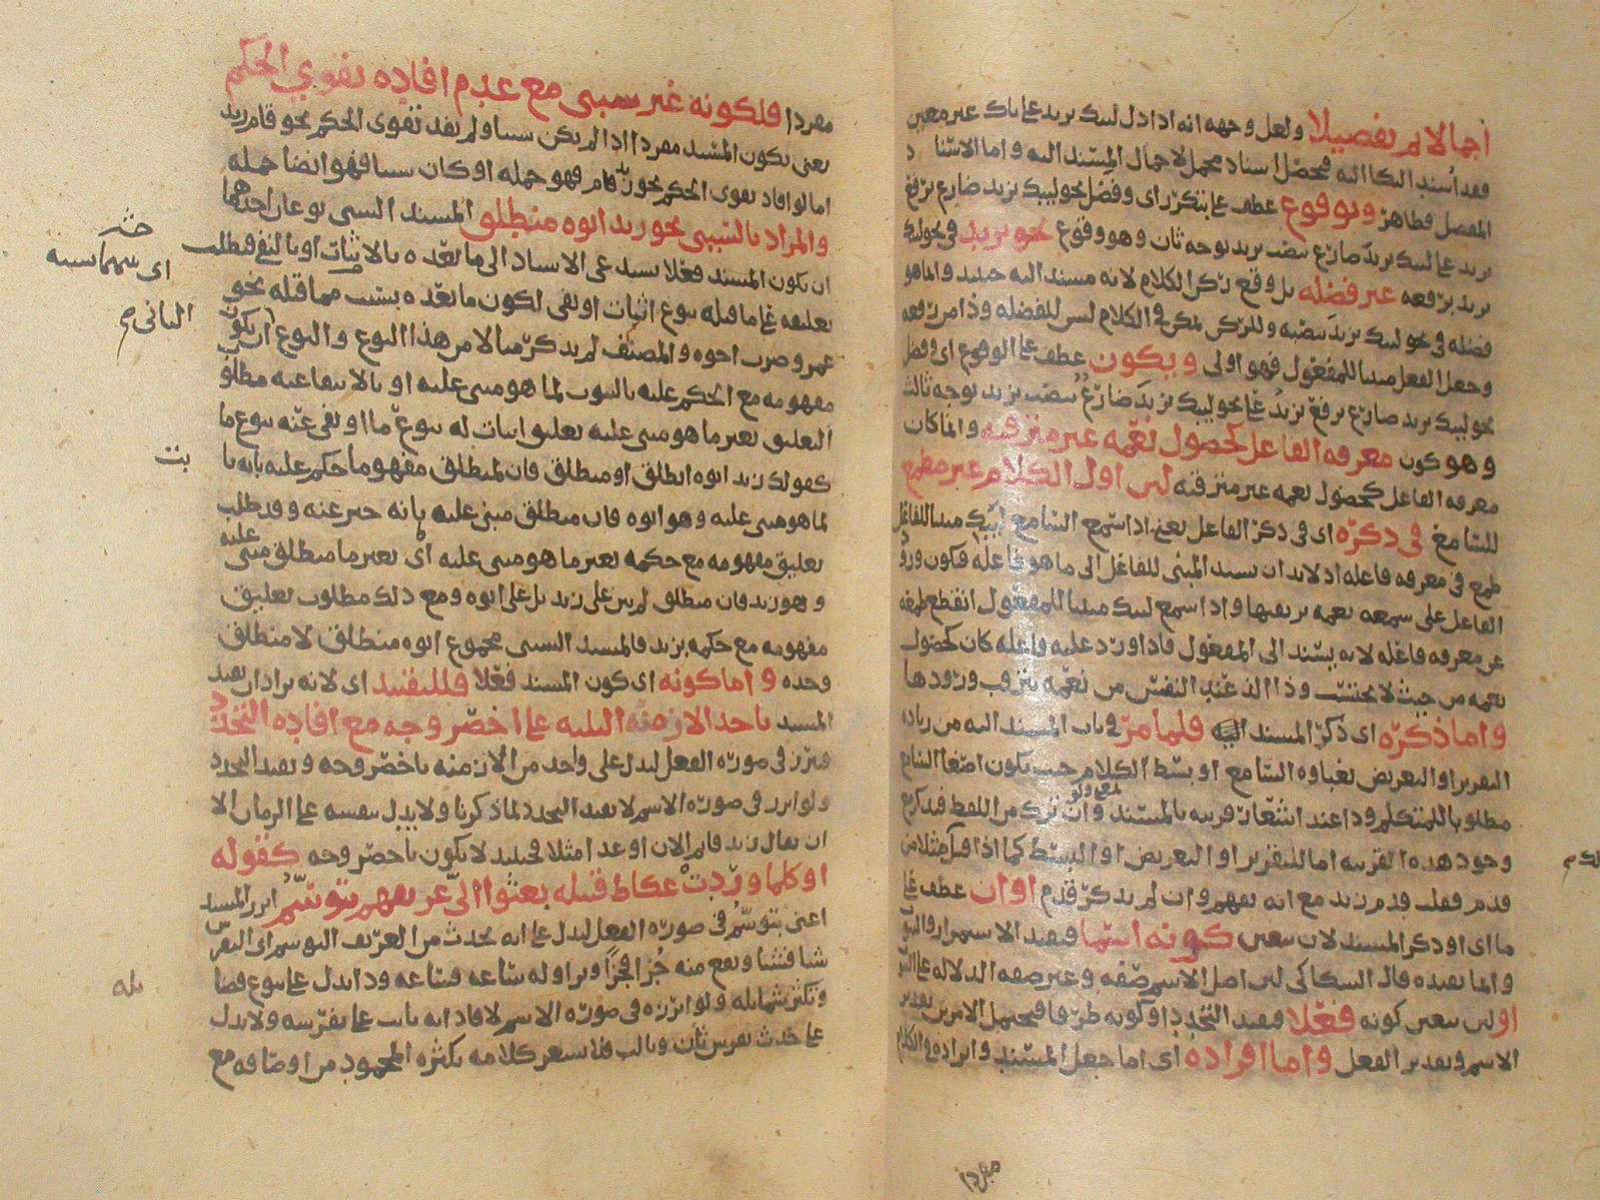 اجمالا ثم تفصيلا ولعل وجهه انه اذا دل ليبك يزيد على باك غير معين
فقد اسند البكا اليه فحصل اسناد مجمل لاجمال المسند اليه واما الاسناد
المفصل فظاهر وبوقوع عطف على بتكرر اى وفضل نحو ليبك يزيد ضارع برفع
يزيد على ليبك يزيد ضارع بنصب يزيد بوجه ثان وهو وقوع نحو يزيد فى نحو ليك
يزيد برفعه غير فضله بل وقع ركن الكلام لانه مسند اليه حينئذ وانما هو
فضله فى نحو ليبك يزيد بنصبه وللركن تمكن فى الكلام ليس للفضله وذا من رفعه
وجعل الفعل مبنيا للمفعول فهو اولى وبكون عطف على الوقوع اى وفضل
نحو ليبك يزيد ضارع برفع يزيد على نحو ليبك يزيد ضارع بنصب يزيد بوجه ثالث
وهو كون معرفه الفاعل كحصول نعمه غير مترقبه وانما كان
معرفه الفاعل كحصول نعمه غير مترقبه لان اول الكلام غير مطمع
للسامع فى ذكره اى فى ذكر الفاعل يعنى اذا سمع السامع ليبك مبنيا للفاعل
طمع فى معرفه فاعله اذ لابد ان يسند المبنى للفاعل الى ما هو فاعله فكون ورود
الفاعل على سمعه نعمه يرتقبها واذا سمع ليبك مبنيا للمفعول انقطع طمعه
عن معرفه فاعله لانه يسند الى المفعول فاذا ورد عليه فاعله كان كحصول
نعمه من حيث لا يحتسب وذا الذ عند النفس من نعمه يترقب ورودها
واما ذكره اى ذكر المسند فلما مر فى باب المسند اليه من زياده
التقرير او التعريض بغباوه السامع او بسط الكلام حيث يكون اصغا السامع
مطلوبا للمتكلم وذا عند اشعار قرينه بالمسند وان ترك من اللفظ فيذكر مع
وجود هذه القرينه اما للتقرير او التعريض او البسط كما اذا قيل مثلا من
قدم فقلت قدم زيد مع انه يفهم وان لم يذكر قدم او ان عطف على
ما اى او ذكر المسند لان يتعين كونه اسما فيفيد الاستمرار والثبوت
وانما يفيده قال السكاكى لان اصل الاسم صفه وغير صفه الدلاله على الثبوت
او لان يتعين كونه فعلا فيفيد التجدد او كونه ظرفا فيحتمل الامرين بتقدير
الاسم وتقدير الفعل واما افراده اى اما جعل المسند وايراده فى الكلام
مفردا
مفردا فلكونه غير سببى مع عدم افاده تقوي الحكم
يعنى يكون المسند مفردا اذا لم يكن سببيا ولم يفد تقوى الحكم نحو قام زيد
اما لو افاد تقوى الحكم نحو زيد قام فهو جمله او كان سببيا فهو ايضا جمله
والمراد بالسببى نحو زيد ابوه منطلق المسند السببى نوعان احدهما
ان يكون المسند فعلا يستدعى الاسناد الى ما بعده بالاثبات او بالنفى فطلب
تعليقه على ما قبله بنوع اثبات او نفى لكون ما بعده بسبب مما قبله نحو
عمرو ضرب اخوه والمصنف لم يذكر مثالا من هذا النوع والنوع ان يكون
مفهومه مع الحكم عليه بالثبوت لما هو مبنى عليه او بالانتفا عنه مطلوب
التعليق بغير ما هو مبنى عليه تعليق اثبات له بنوع ما او نفى عنه بنوع ما
كقولك زيد ابوه انطلق او منطلق فان لمنطلق مفهوما حكم عليه بانه ثابت
لما هو مبنى عليه وهو ابوه فان منطلق مبنى عليه بانه خبر عنه وقد طلب
تعليق مفهومه مع حكمه بغير ما هو مبنى عليه اى بغير ما منطلق مبنى عليه
وهو زيد فان منطلق لم يبن على زيد بل على ابوه ومع ذلك مطلوب تعليق
مفهومه مع حكمه بزيد فالمسند السببى مجموع ابوه منطلق لا منطلق
وحده واما كونه اى كون المسند فعلا فللتقييد اى لانه يراد ان يقيد
المسند باحد الازمنه الثلثه على اخصر وجه مع افاده التجدد
فيبرز فى صوره الفعل ليدل على واحد من الازمنه باخصر وجه ويفيد التجدد
ولو ابرز فى صوره الاسم لا يفيد التجدد لما ذكرنا ولا يدل بنفسه على الزمان الا
ان يقال زيد قايم الان او غدا مثلا فحينئذ لا يكون باخصر وجه كقوله
او كلما وردت عكاظ قبيله بعثوا الى عريفهم يتوسم ابرز المسند
اعنى يتوسم فى صوره الفعل ليدل على انه يحدث من العريف التوسم اى التفرس
شيا فشيا ويقع منه جزا فجزا ويراوله ساعه فساعه وذا يدل على نوع فضا
وتكثر شمايله ولو ابرزه فى صوره الاسم لافاد انه ثابت على تفرسه ولا يدل
على حدث تفرس ثان وثالث فلا يشعر كلامه بكثره المحمود من اوصافه مع
اى
الثانى صح